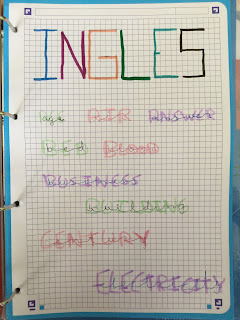 INGLES
age AIR ANSWER
BED BLOOD
BUSINESS
BUILDING
CENTURY
ELECTRICITY